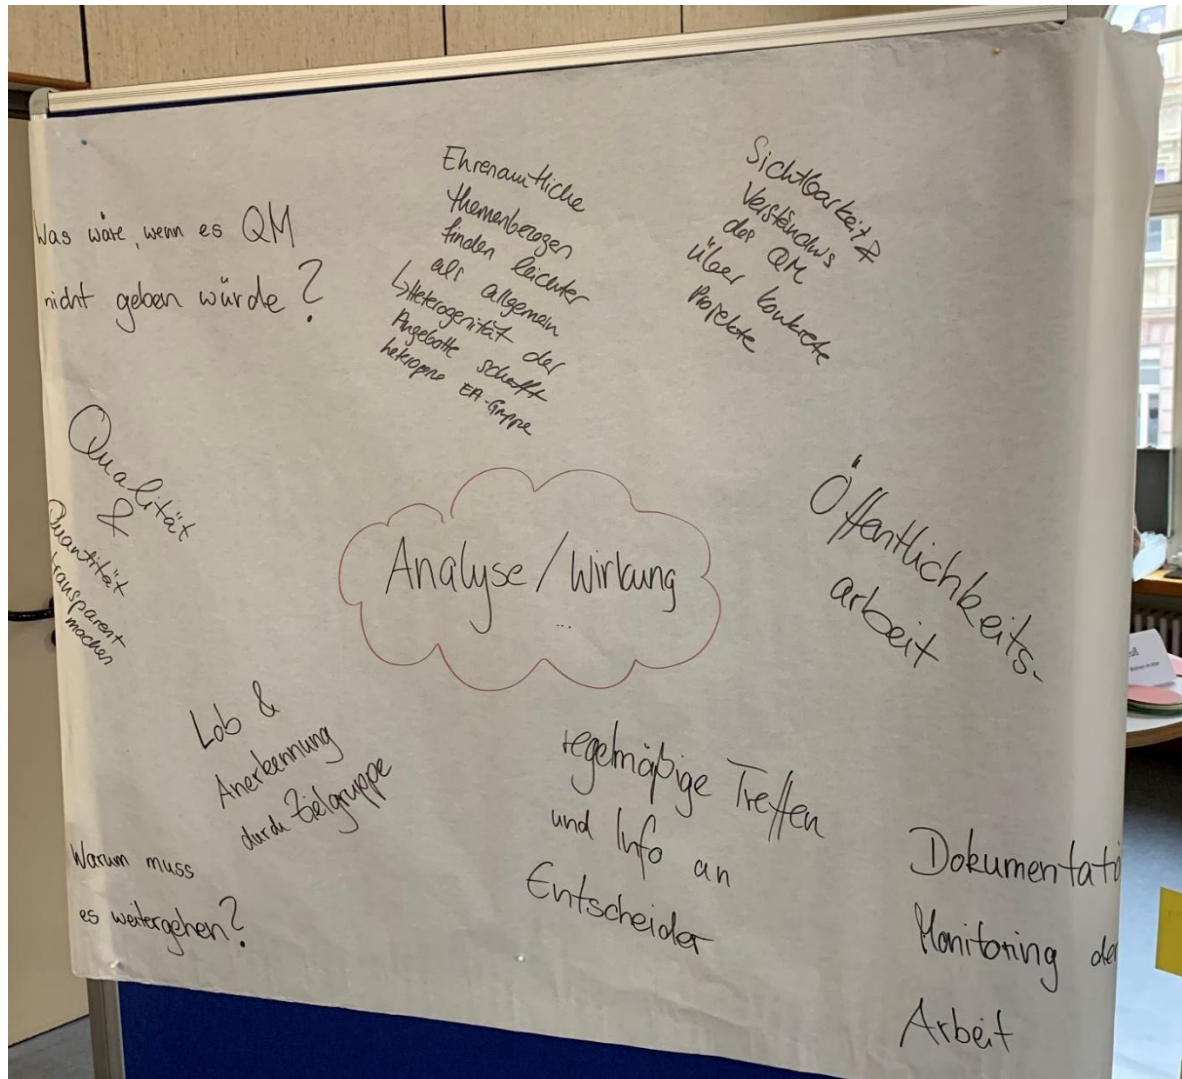 Was wäre, wenn es QM
nicht geben würde?
Ehrenamtliche
themenbezogen
finden leichter
als allgemein
↳ Heterogenität der
Angebotte schafft
heterogene EA-Gruppe
Sichtbarkeit &
Verständnis
des QM
über konkrete
Projekte
Qualität
&
Quantität
transparent
machen
Analyse / Wirkung
...
Öffentlichkeits-
arbeit
Lob &
Anerkennung
durch Zielgruppe
regelmäßige Treffen
und Info an
Entscheider
Warum muss
es weitergehen?
Dokumentatio
Monitoring der
Arbeit